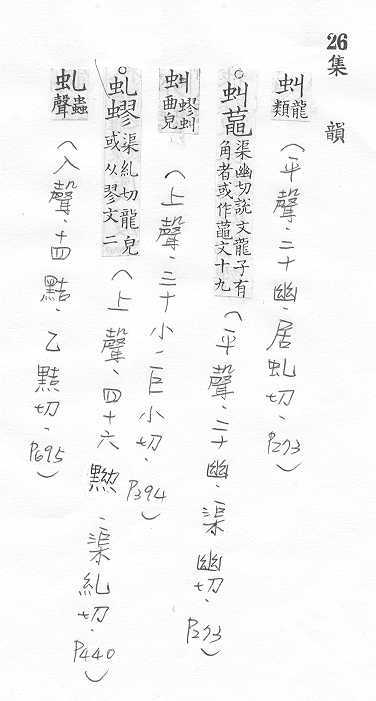 26 集韻
虯 龍類（平聲、二十幽、居虬切、P273）
虯𧕄 渠幽切說文龍子有角者或作𧕄文十九（平聲、二十幽、渠幽切、P273）
虯 蟉虯龍皃（上聲、三十小、巨小切、P394）
虬蟉 渠糺切龍皃或从翏文二（上聲、四十六黝、渠糺切、P440）
虬 蟲聲（入聲、十四黠、乙黠切、P695）